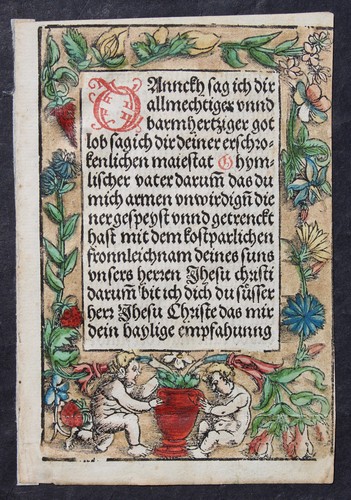 Danncky sag ich dir
allmechtiger vnnd
barmhertziger got
lob sag ich dir deiner erschro⸗
kenlichen maiestat O hym⸗
lischer vater darum̃ das du
mich armen vnwirdigñ die
ner gespeyst vnnd getrenckt
hast mit dem kostparlichen
fronnleichnam deines suns
vnsers herren Jhesu christi
darum̃ bit ich dich du süsser
herr Jhesu Christe das mir
dein haylige empfahunng